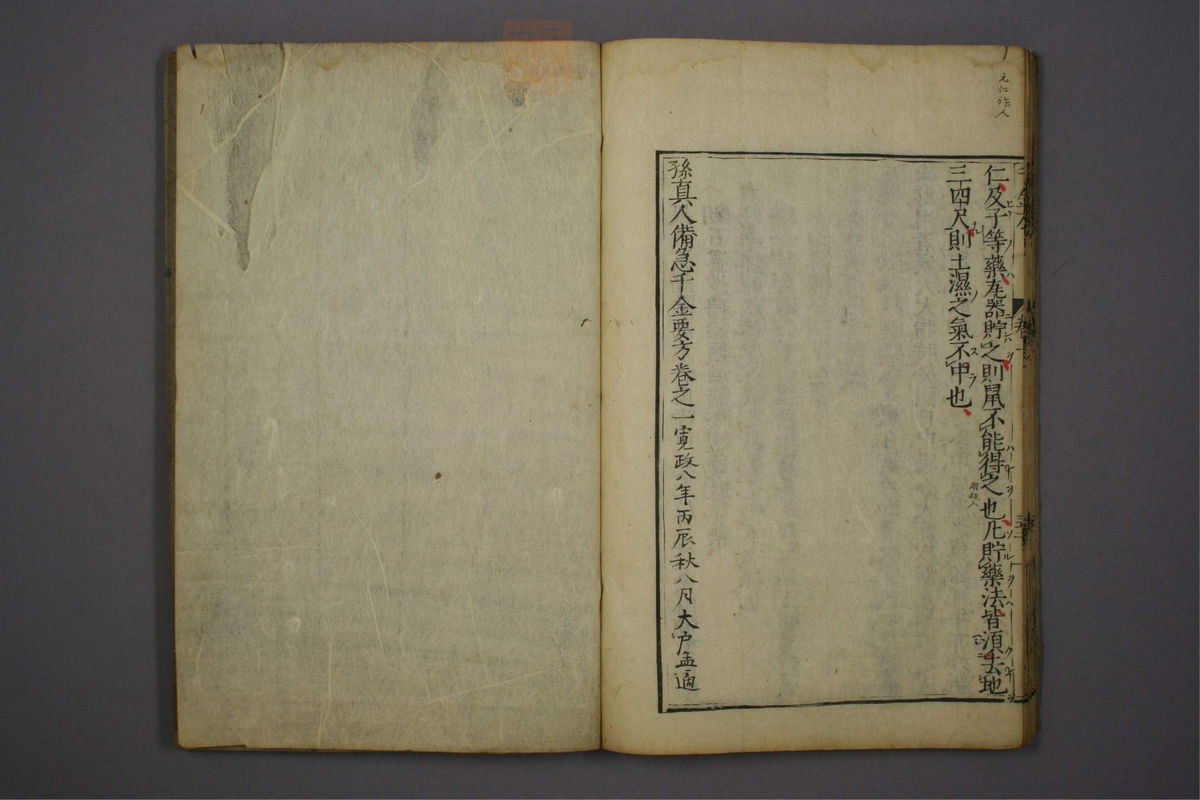 元仁作人
仁及子等藥瓦器貯之則鼠不能得之也凡貯藥法皆須去地
三四尺則土濕之氣不中也
孫真人備急千金要方卷之一寬政八年丙辰秋八月大戶孟適